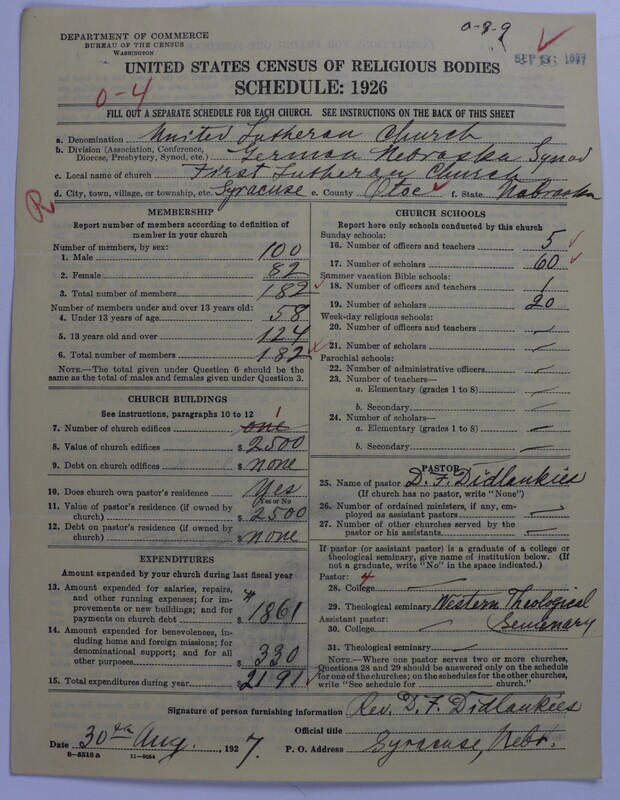 0-8-9
DEPARTMENT OF COMMERCE
BUREAU OF THE CENSUS
WASHINGTON
UNITED STATES CENSUS OF RELIGIOUS BODIES
SCHEDULE: 1926
0-4
FILL OUT A SEPARATE SCHEDULE FOR EACH CHURCH. SEE INSTRUCTIONS ON THE BACK OF THIS SHEET
a. Denomination United Lutheran Church
b. Division (Association, Conference, Diocese, Presbytery, Synod, etc.) German Nebraska Synod
c. Local name of church First Lutheran Church
d. City, town, village, or township, etc. Syracuse e. County Otoe f. State Nebraska
R
MEMBERSHIP
Report number of members according to definition of
member in your church
Number of members, by sex:
1. Male 100
2. Female 82
3. Total number of members 182
Number of members under and over 13 years old:
4. Under 13 years of age 58
5. 13 years old and over 124
6. Total number of members 182
NOTE.—The total given under Question 6 should be
the same as the total of males and females given under Question 3.
CHURCH BUILDINGS
See instructions, paragraphs 10 to 12
7. Number of church edifices one 1
8. Value of church edifices $ 2500
9. Debt on church edifices $ none
10. Does church own pastor's residence Yes
Yes or No
11. Value of pastor's residence (if owned by
church) $ 2500
12. Debt on pastor's residence (if owned by
church) $ none
EXPENDITURES
Amount expended by your church during last fiscal year
13. Amount expended for salaries, repairs,
and other running expenses; for im-
provements or new buildings; and for
payments on church debt $ 1861
14. Amount expended for benevolences, in-
cluding home and foreign missions; for
denominational support; and for all
other purposes $ 330
15. Total expenditures during year 2191
CHURCH SCHOOLS
Report here only schools conducted by this church
Sunday schools:
16. Number of officers and teachers 5
17. Number of scholars 60
Summer vacation Bible schools:
18. Number of officers and teachers 1
19. Number of scholars 20
Week-day religious schools:
20. Number of officers and teachers
21. Number of scholars
Parochial schools:
22. Number of administrative officers
23. Number of teachers—
a. Elementary (grades 1 to 8)
b. Secondary
24. Number of scholars—
a. Elementary (grades 1 to 8)
b. Secondary
PASTOR
25. Name of pastor D. F. Didlaukies
(If church has no pastor, write "None")
26. Number of ordained ministers, if any, em-
ployed as assistant pastors
27. Number of other churches served by the
pastor or his assistants
If pastor (or assistant pastor) is a graduate of a college or
theological seminary, give name of institution below. (If
not a graduate, write "No" in the space indicated.)
Pastor: 4
28. College
29. Theological seminary Western Theological
Seminary
Assistant pastor:
30. College
31. Theological seminary
NOTE.—Where one pastor serves two or more churches,
Questions 28 and 29 should be answered only on the schedule
for one of the churches; on the schedules for the other churches,
write "See schedule for church."
Signature of person furnishing information Rev. D. F. Didlaukies
Official title
Date 30th Aug. , 1927. P. O. Address Syracuse, Nebr.
8-5518a 11-9054